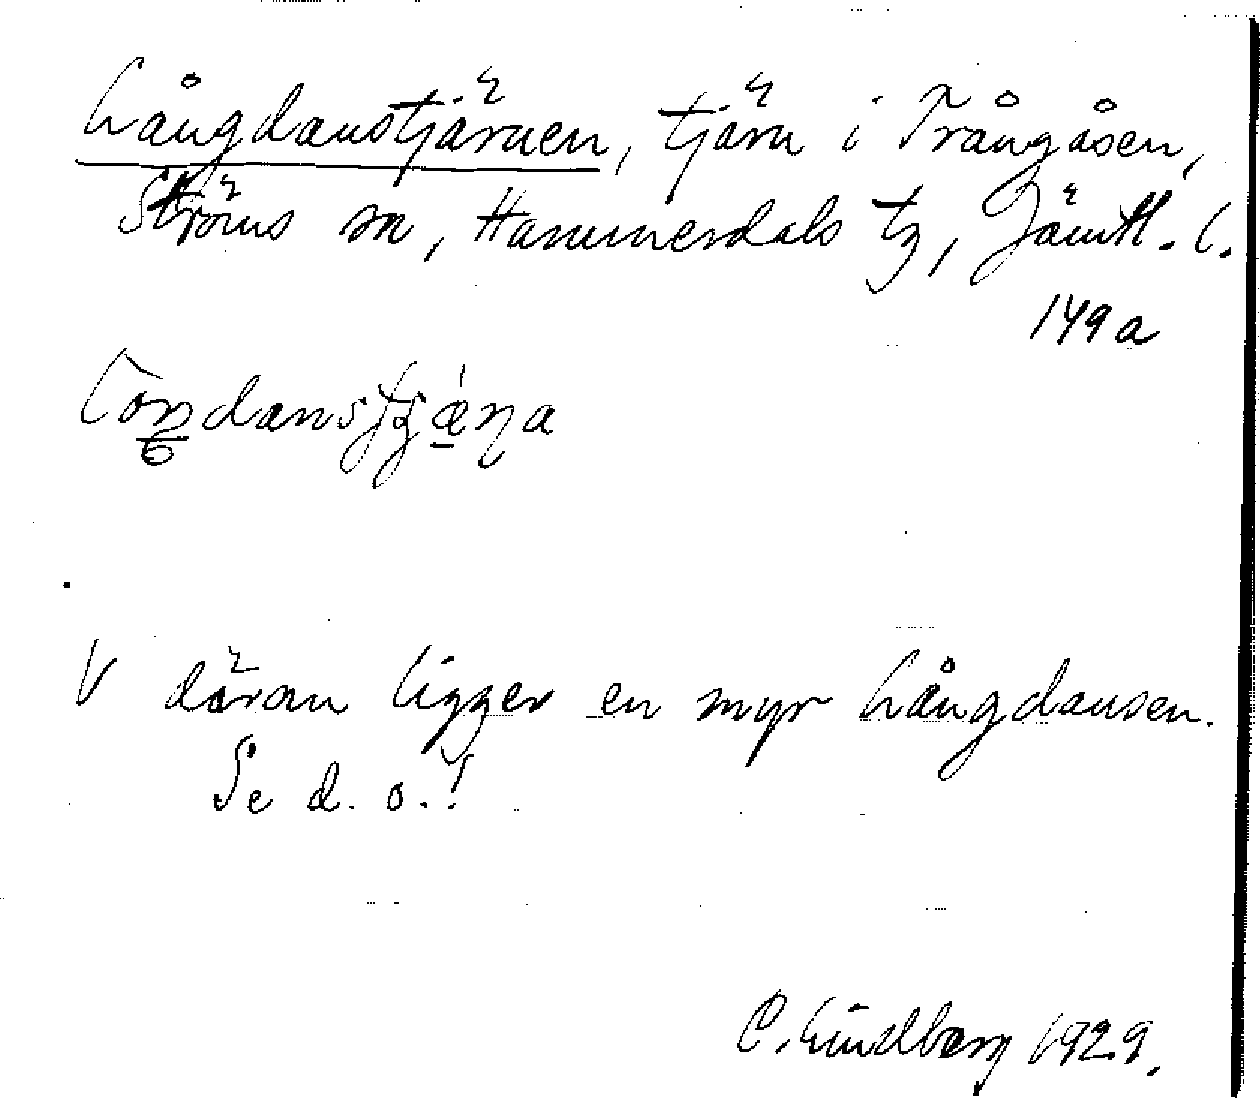 Långdanstjärnen, tjärn i Trångåsen,
Ströms sn, Hammerdals tg, Jämtl. l.
149a
V däron ligger en myr Långdansen.
Se d. o.!
C. Lindberg 1929.